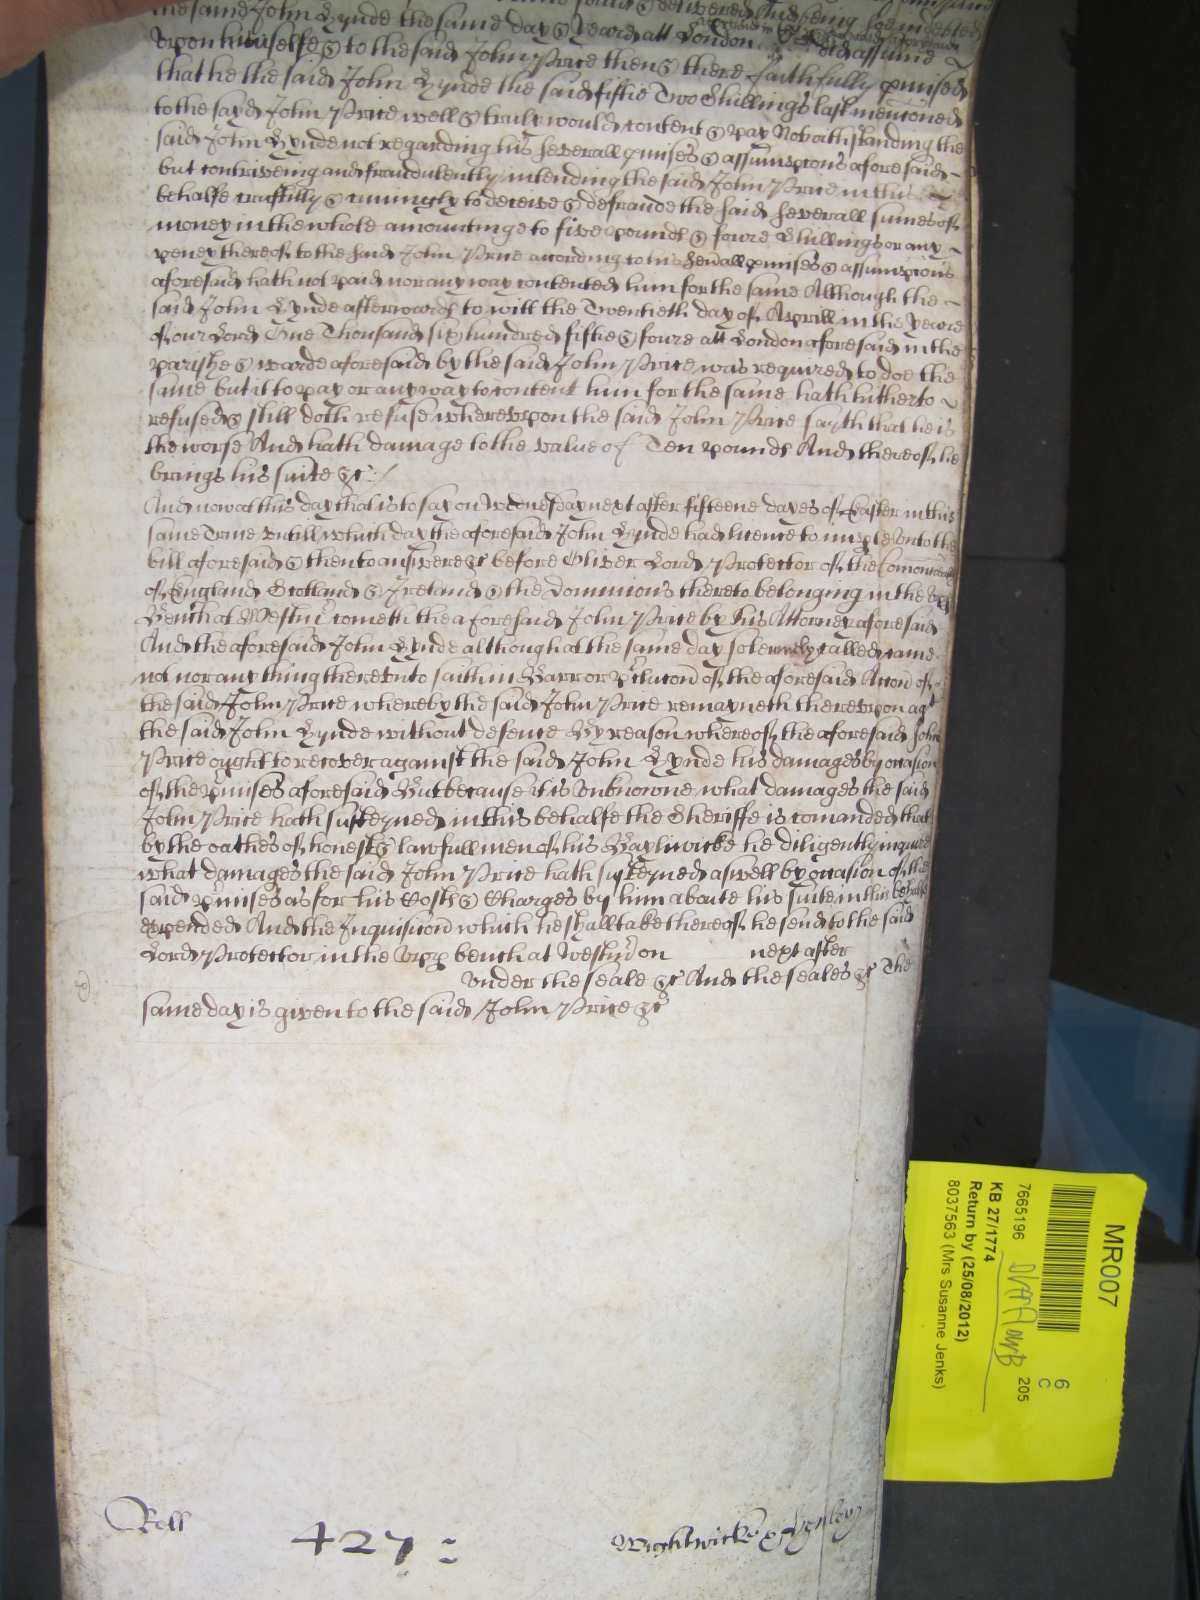 the same John Lynde the same day & yeare att London
Upon himselfe & to the said John Price then & there faithfully pmised
that he the said John Lynde the said fiftie Two Shillings last mentioned
to the sayd John Price well & truly would content & pay Notwithstanding the
said John Lynde not regarding his severall pmises & assumpcons aforesaid
but contriveing and fraudulently intending the said John Price in this
behalfe craftilly & cuningly to deceive & defraude the said severall sumes of
money in the whole amountinge to five pounds & fowre Shillings or any
peney thereof to the said John Price according to his sevall pmises & assumpcons
aforesaid hath not paid nor any way contented him for the same Although the
said John Lynde afterwards to witt the Twentieth day of Aprill in the yeare
of our Lord One Thousand six hundred fiftie & foure att London aforesaid in the
parishe & warde aforesaid by the said John Price was required to doe the
same but it to pay or any way to content him for the same hath hitherto
refused & still doth refuse whereupon the said John Price sayth that he is
the worse And hath damage to the value of Ten pounds And thereof he
brings his suite &c
And now at this day that is to say on Wednesday next after fifteene dayes of Easter in this
same Terme untill which day the aforesaid John Lynde had licence to imple unto the
bill aforesaid & then to answere &c before Oliver Lord Protector of the Comonwealth
of England Scotland & Ireland & the Dominions thereto belonging in the upp
Bench at Westm cometh the aforesaid John Price by his Attorney aforesaid
And the aforesaid John Lynde although at the same day solemnely called came
not nor any thing thereunto saith in Barr or pclucon of the aforesaid Accon of
the said John Price whereby the said John Price remayneth thereupon agt
the said John Lynde without defence By reason whereof the aforesaid John
Price ought to recover against the said John Lynde his damages by occasion
of the pmises aforesaid But because it is unknowne what damages the said
John Price hath susteyned in this behalfe the Sheriffe is comanded that
by the oathes of honest & lawfull men of his Bayliwicke he diligently inquire
what damages the said John Price hath susteyned aswell by occasion of the
said pmises as for his Costs & Charges by him aboute his suite in this behalfe
expended And the Inquisicon which he shall take thereof he send to the said
Lord Protector in the upp bench at Westm on next after
under the seale &c And the seales &c The
same day is given to the said John Price &c
Roll 427 Wightwicke & Henley
MR007
7665196
KB 27/1774
Return by (25/08/2012)
8037563 (Mrs Susanne Jenks)
205
6
C